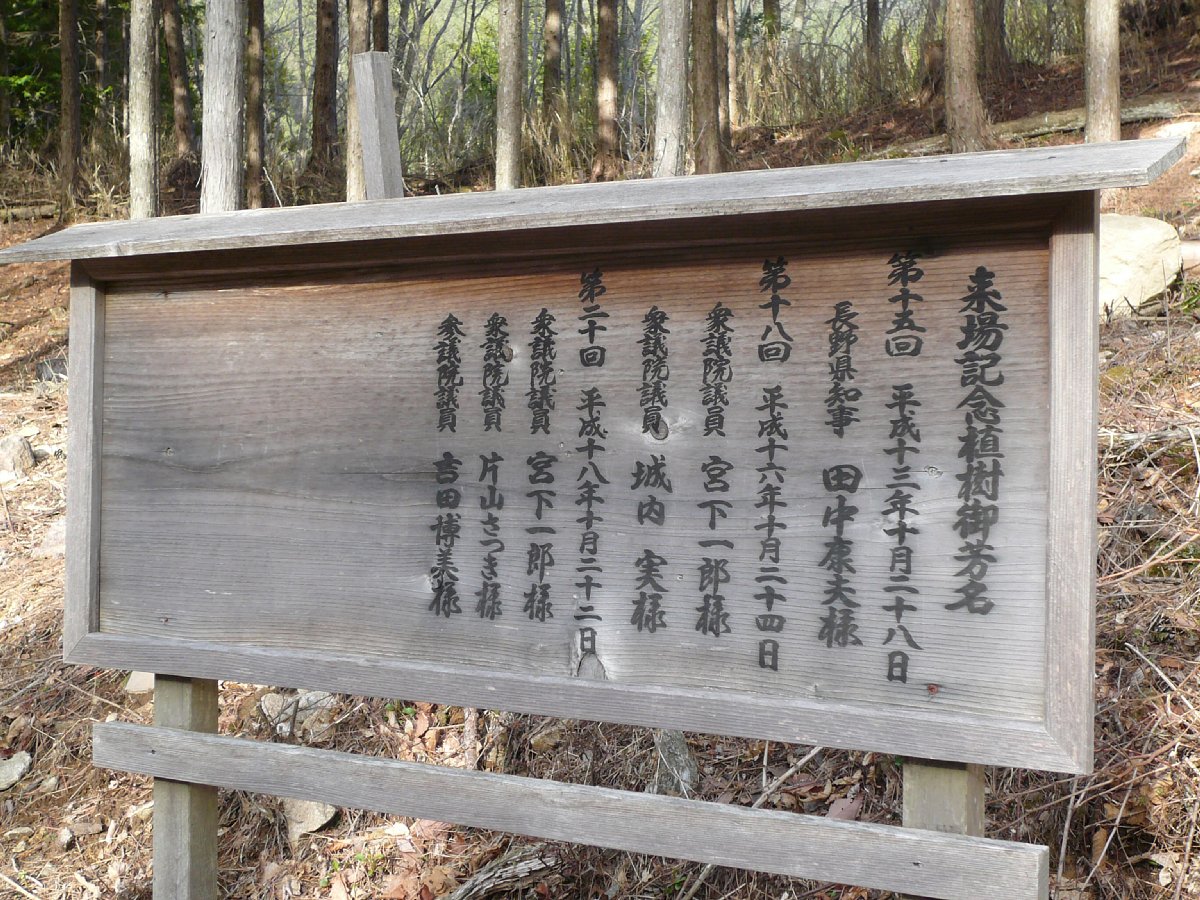 来場記念植樹御芳名
第十五回 平成十三年十月二十八日
長野県知事 田中康夫様
第十八回 平成十六年十月二十四日
衆議院議員 宮下一郎様
衆議院議員 城内 実様
第二十回 平成十八年十月二十二日
衆議院議員 宮下一郎様
衆議院議員 片山さつき様
参議院議員 吉田博美様